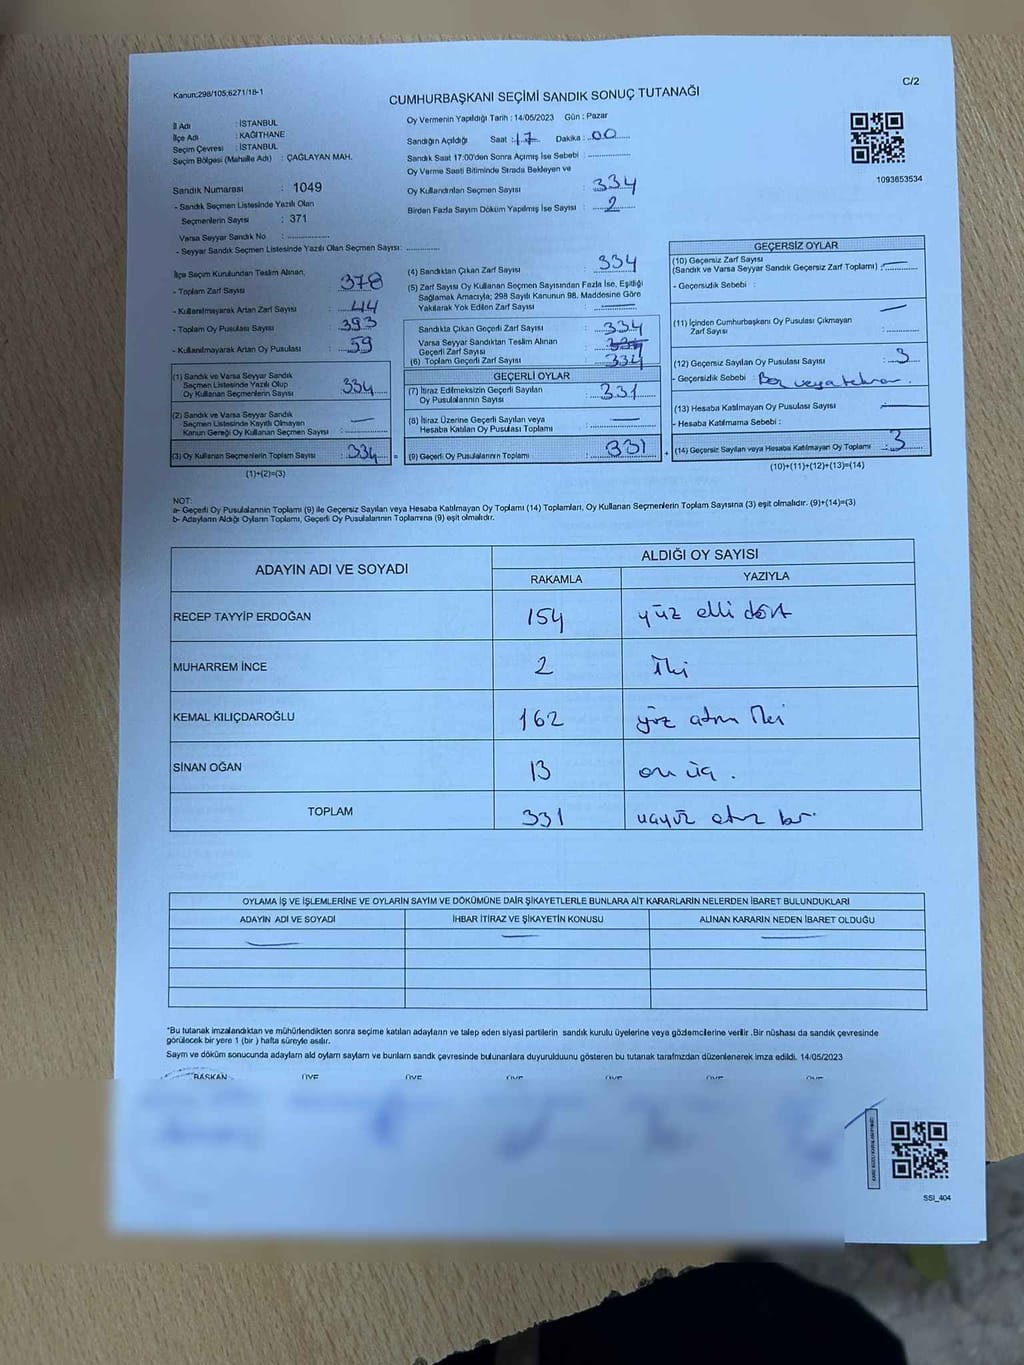 Kanun;298/105;6271/18-1
C/2
CUMHURBAŞKANI SEÇİMİ SANDIK SONUÇ TUTANAĞI
İl Adı : İSTANBUL
İlçe Adı : KAĞITHANE
Seçim Çevresi : İSTANBUL
Seçim Bölgesi (Mahalle Adı) : ÇAĞLAYAN MAH.
Sandık Numarası : 1049
- Sandık Seçmen Listesinde Yazılı Olan
Seçmenlerin Sayısı : 371
Varsa Seyyar Sandık No : ..............
- Seyyar Sandık Seçmen Listesinde Yazılı Olan Seçmen Sayısı: ............
Oy Vermenin Yapıldığı Tarih : 14/05/2023 Gün : Pazar
Sandığın Açıldığı Saat : 17 Dakika : 00
Sandık Saat 17:00'den Sonra Açımış İse Sebebi : ..............
Oy Verme Saati Bitiminde Strada Bekleyen ve
Oy Kullandırılan Seçmen Sayısı : 334
Birden Fazla Sayım Döküm Yapılmış İse Sayısı : 2
1093653534
İlçe Seçim Kurulundan Teslim Alınan;
- Toplam Zarf Sayısı : 378
- Kullanılmayarak Artan Zarf Sayısı : 44
- Toplam Oy Pusulası Sayısı : 393
- Kullanılmayarak Artan Oy Pusulası : 59
(1) Sandık ve Varsa Seyyar Sandık
Seçmen Listesinde Yazılı Olup
Oy Kullanan Seçmenlerin Sayısı : 334
(2) Sandık ve Varsa Seyyar Sandık
Seçmen Listesinde Kayıtlı Olmayan
Kanun Gereği Oy Kullanan Seçmen Sayısı : —
(3) Oy Kullanan Seçmenlerin Toplam Sayısı : 334 =
(1)+(2)=(3)
(4) Sandıktan Çıkan Zarf Sayısı : 334
(5) Zarf Sayısı Oy Kullanan Seçmen Sayısından Fazla İse, Eşitliği
Sağlamak Amacıyla; 298 Sayılı Kanunun 98. Maddesine Göre
Yakılarak Yok Edilen Zarf Sayısı : —
Sandıkta Çıkan Geçerli Zarf Sayısı : 334
Varsa Seyyar Sandıktan Teslim Alınan
Geçerli Zarf Sayısı :
(6) Toplam Geçerli Zarf Sayısı : 334
GEÇERLİ OYLAR
(7) İtiraz Edilmeksizin Geçerli Sayılan
Oy Pusulalarının Sayısı : 331
(8) İtiraz Üzerine Geçerli Sayılan veya
Hesaba Katılan Oy Pusulası Toplamı : —
(9) Geçerli Oy Pusulalarının Toplamı : 331 +
GEÇERSİZ OYLAR
(10) Geçersiz Zarf Sayısı
(Sandık ve Varsa Seyyar Sandık Geçersiz Zarf Toplamı) : —
- Geçersizlik Sebebi :
(11) İçinden Cumhurbaşkanı Oy Pusulası Çıkmayan
Zarf Sayısı : —
(12) Geçersiz Sayılan Oy Pusulası Sayısı : 3
- Geçersizlik Sebebi :
(13) Hesaba Katılmayan Oy Pusulası Sayısı : —
- Hesaba Katılmama Sebebi :
(14) Geçersiz Sayılan veya Hesaba Katılmayan Oy Toplamı : 3
(10)+(11)+(12)+(13)=(14)
NOT:
a- Geçerli Oy Pusulalarının Toplamı (9) ile Geçersiz Sayılan veya Hesaba Katılmayan Oy Toplamı (14) Toplamları, Oy Kullanan Seçmenlerin Toplam Sayısına (3) eşit olmalıdır. (9)+(14)=(3)
b- Adayların Aldığı Oyların Toplamı, Geçerli Oy Pusulalarının Toplamına (9) eşit olmalıdır.
ADAYIN ADI VE SOYADI
ALDIĞI OY SAYISI
RAKAMLA YAZIYLA
RECEP TAYYİP ERDOĞAN 154 yüz elli dört
MUHARREM İNCE 2 İki
KEMAL KILIÇDAROĞLU 162 yüz atmış iki
SİNAN OĞAN 13 on üç .
TOPLAM 331 üçyüz otuz bir
OYLAMA İŞ VE İŞLEMLERİNE VE OYLARIN SAYIM VE DÖKÜMÜNE DAİR ŞİKAYETLERLE BUNLARA AİT KARARLARIN NELERDEN İBARET BULUNDUKLARI
ADAYIN ADI VE SOYADI İHBAR İTİRAZ VE ŞİKAYETİN KONUSU ALINAN KARARIN NEDEN İBARET OLDUĞU
— — —
*Bu tutanak imzalandıktan ve mühürlendikten sonra seçime katılan adayların ve talep eden siyasi partilerin sandık kurulu üyelerine veya gözlemcilerine verilir .Bir nüshası da sandık çevresinde
görülecek bir yere 1 (bir ) hafta süreyle asılır.
Sayım ve döküm sonucunda adayların ald oyların sayıları ve bunların sandık çevresinde bulunanlara duyurulduunu gösteren bu tutanak tarafımzdan düzenlenerek imza edildi. 14/05/2023
BAŞKAN ÜYE ÜYE ÜYE ÜYE ÜYE ÜYE
SSİ_404